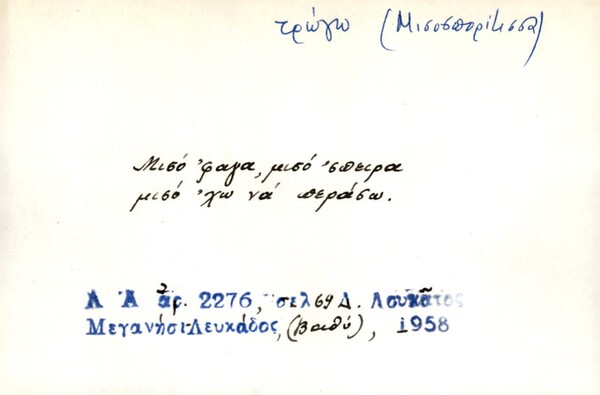 τρώγω (Μισοσπορίτισσα)
Μισό 'φαγα, μισό 'σπειρα
μισό 'χω νά περάσω.
Λ Ά ἀρ. 2276, σελ 69 Δ. Λουκᾶτος
Μεγανήσι-Λευκάδος, (Βαθύ), 1958